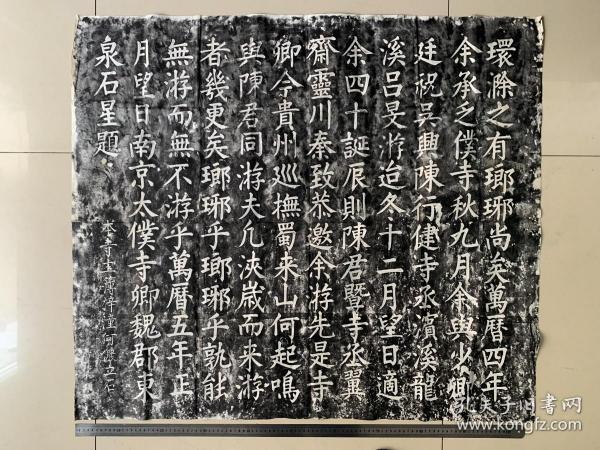 環滁之有瑯琊尚矣萬曆四年
余承乏僕寺秋九月余與少卿
廷祝吳興陳行健寺丞濱溪龍
溪呂旻游迨冬十二月望日適
余四十誕辰則陳君暨寺丞翼
齋靈川秦致恭邀余游先是寺
卿今貴州巡撫蜀來山何起鳴
與陳君同游夫凡浹歲而來游
者幾更矣瑯琊乎瑯琊乎孰能
無游而無不游乎萬曆五年正
月望日南京太僕寺卿魏郡東
泉石星題
本寺主
孔夫子旧书网
www.kongfz.com